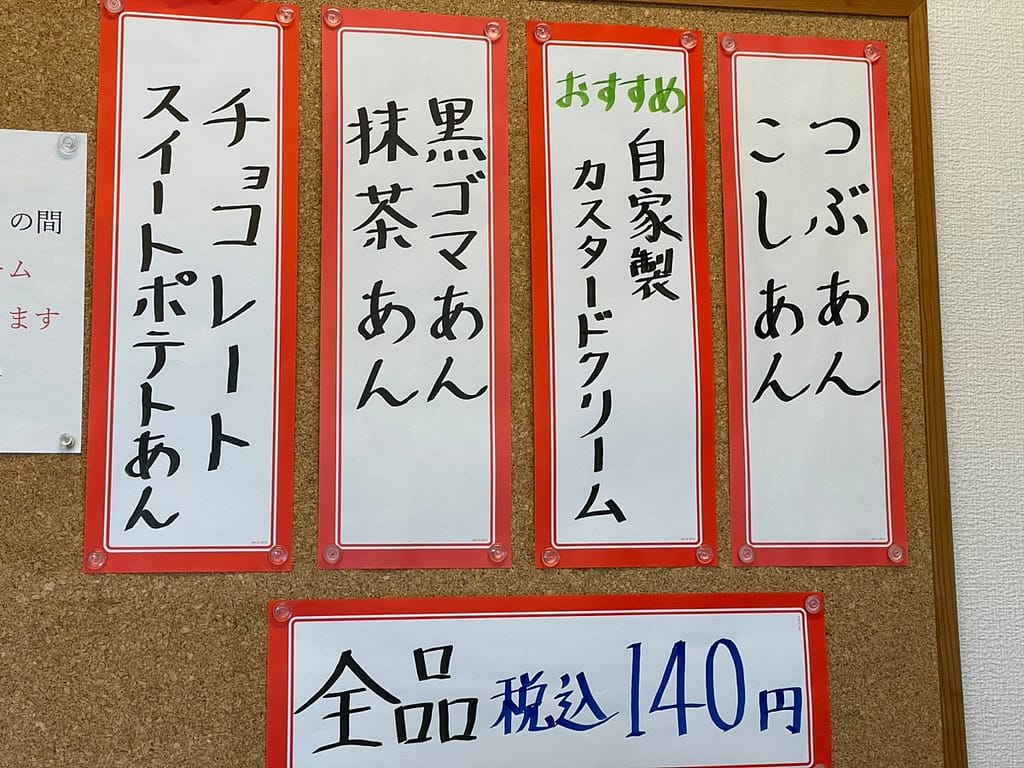 つぶあん
こしあん
おすすめ
自家製
カスタードクリーム
黒ゴマあん
抹茶あん
チョコレート
スイートポテトあん
の間
ム
ます
全品 税込 140円